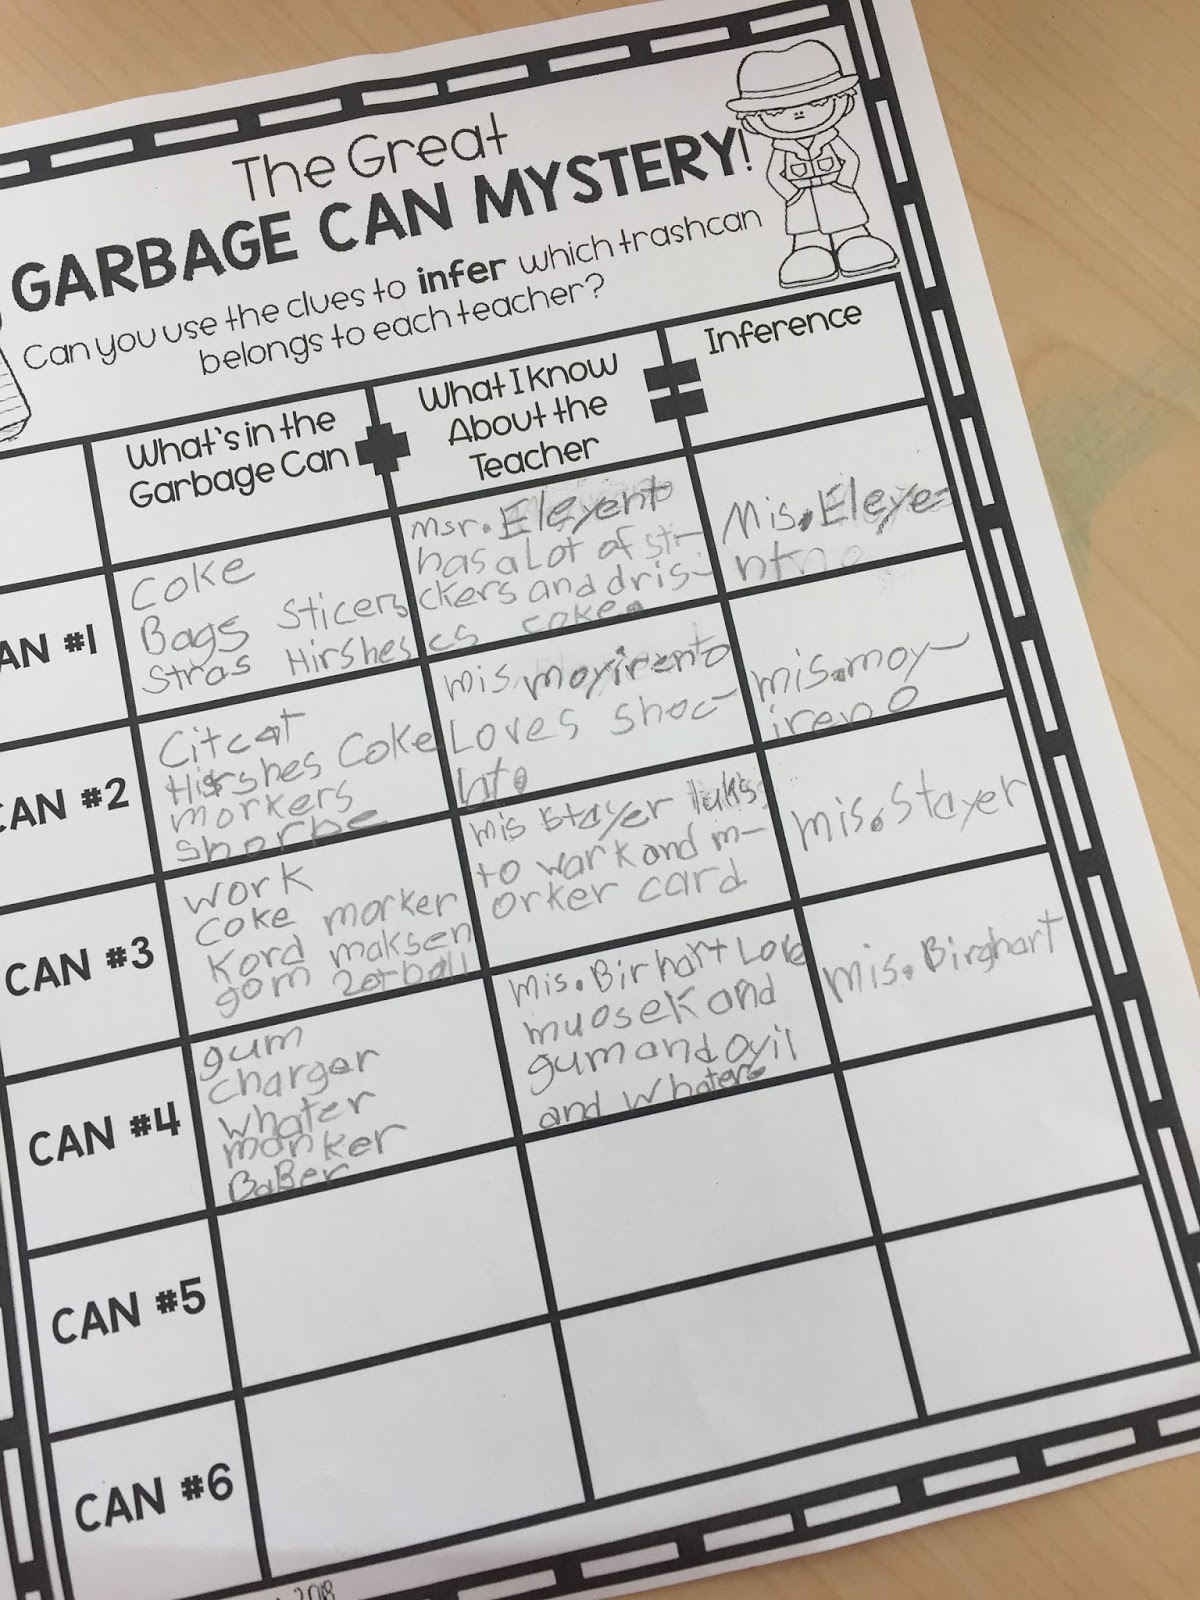 The Great
GARBAGE CAN MYSTERY!
Can you use the clues to infer which trashcan
belongs to each teacher?
What's in the
Garbage Can
What I know
About the
Teacher
Inference
AN #1
Coke
Bags Sticers
Stras Hirshes
msr. Eleyent
has a Lot of str-
ckers and dris-
cs coke.
Mis. Eleye-
nt
CAN #2
Citcat
Hirshes Coke
morkers
shorpe
mis moyireno
Loves shoc-
lat.
mis. moy-
ireno
CAN #3
work
coke morker
Kord maksen
gom
mis Stayer
to work and m-
orker card
mis. Stayer
CAN #4
gum
charger
whater
manker
BaBer
mis. Birhart Love
muosek and
gum and oyil
and whater.
mis. Birghart
CAN #5
CAN #6
2018